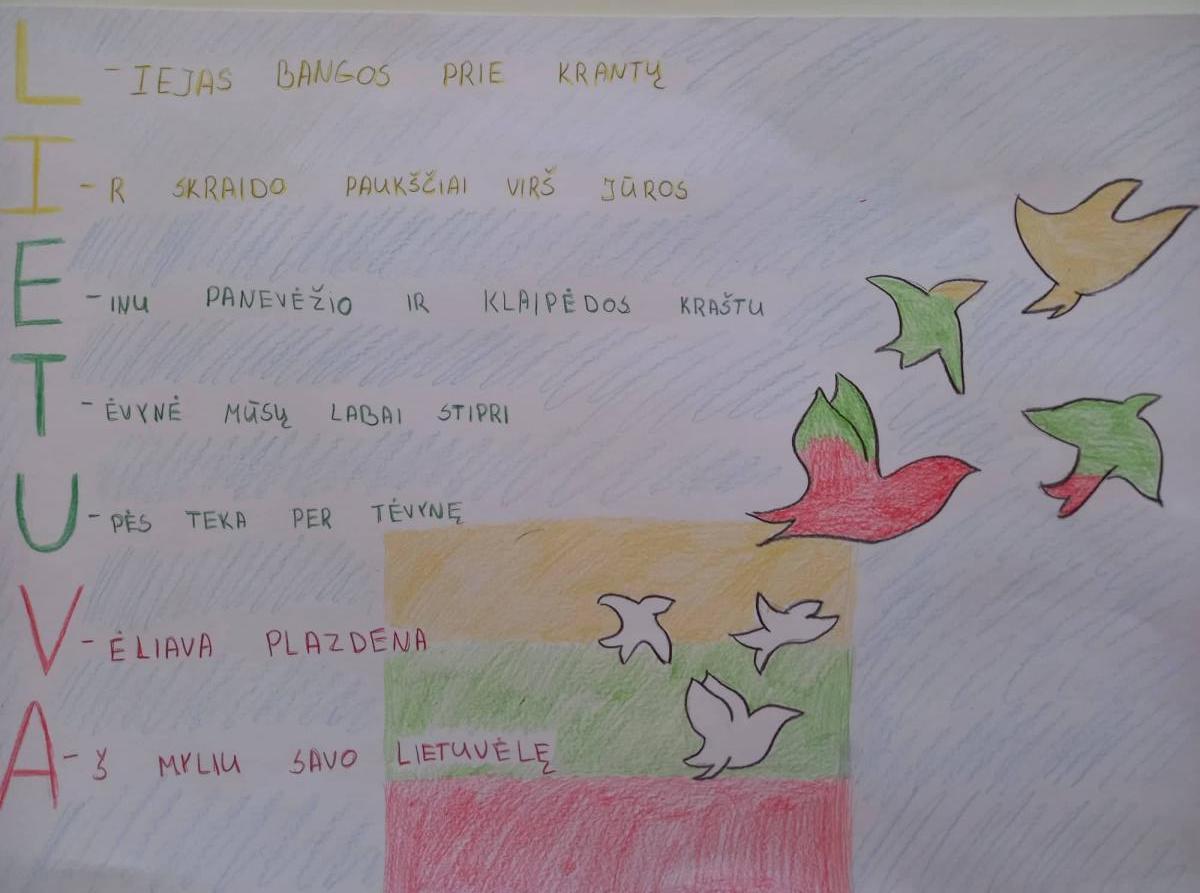 L - IEJAS BANGOS PRIE KRANTŲ
I - R SKRAIDO PAUKŠČIAI VIRŠ JŪROS
E - INU PANEVĖŽIO IR KLAIPĖDOS KRAŠTU
T - ĖVYNĖ MŪSŲ LABAI STIPRI
U - PĖS TEKA PER TĖVYNĘ
V - ĖLIAVA PLAZDENA
A - Š MYLIU SAVO LIETUVĖLĘ